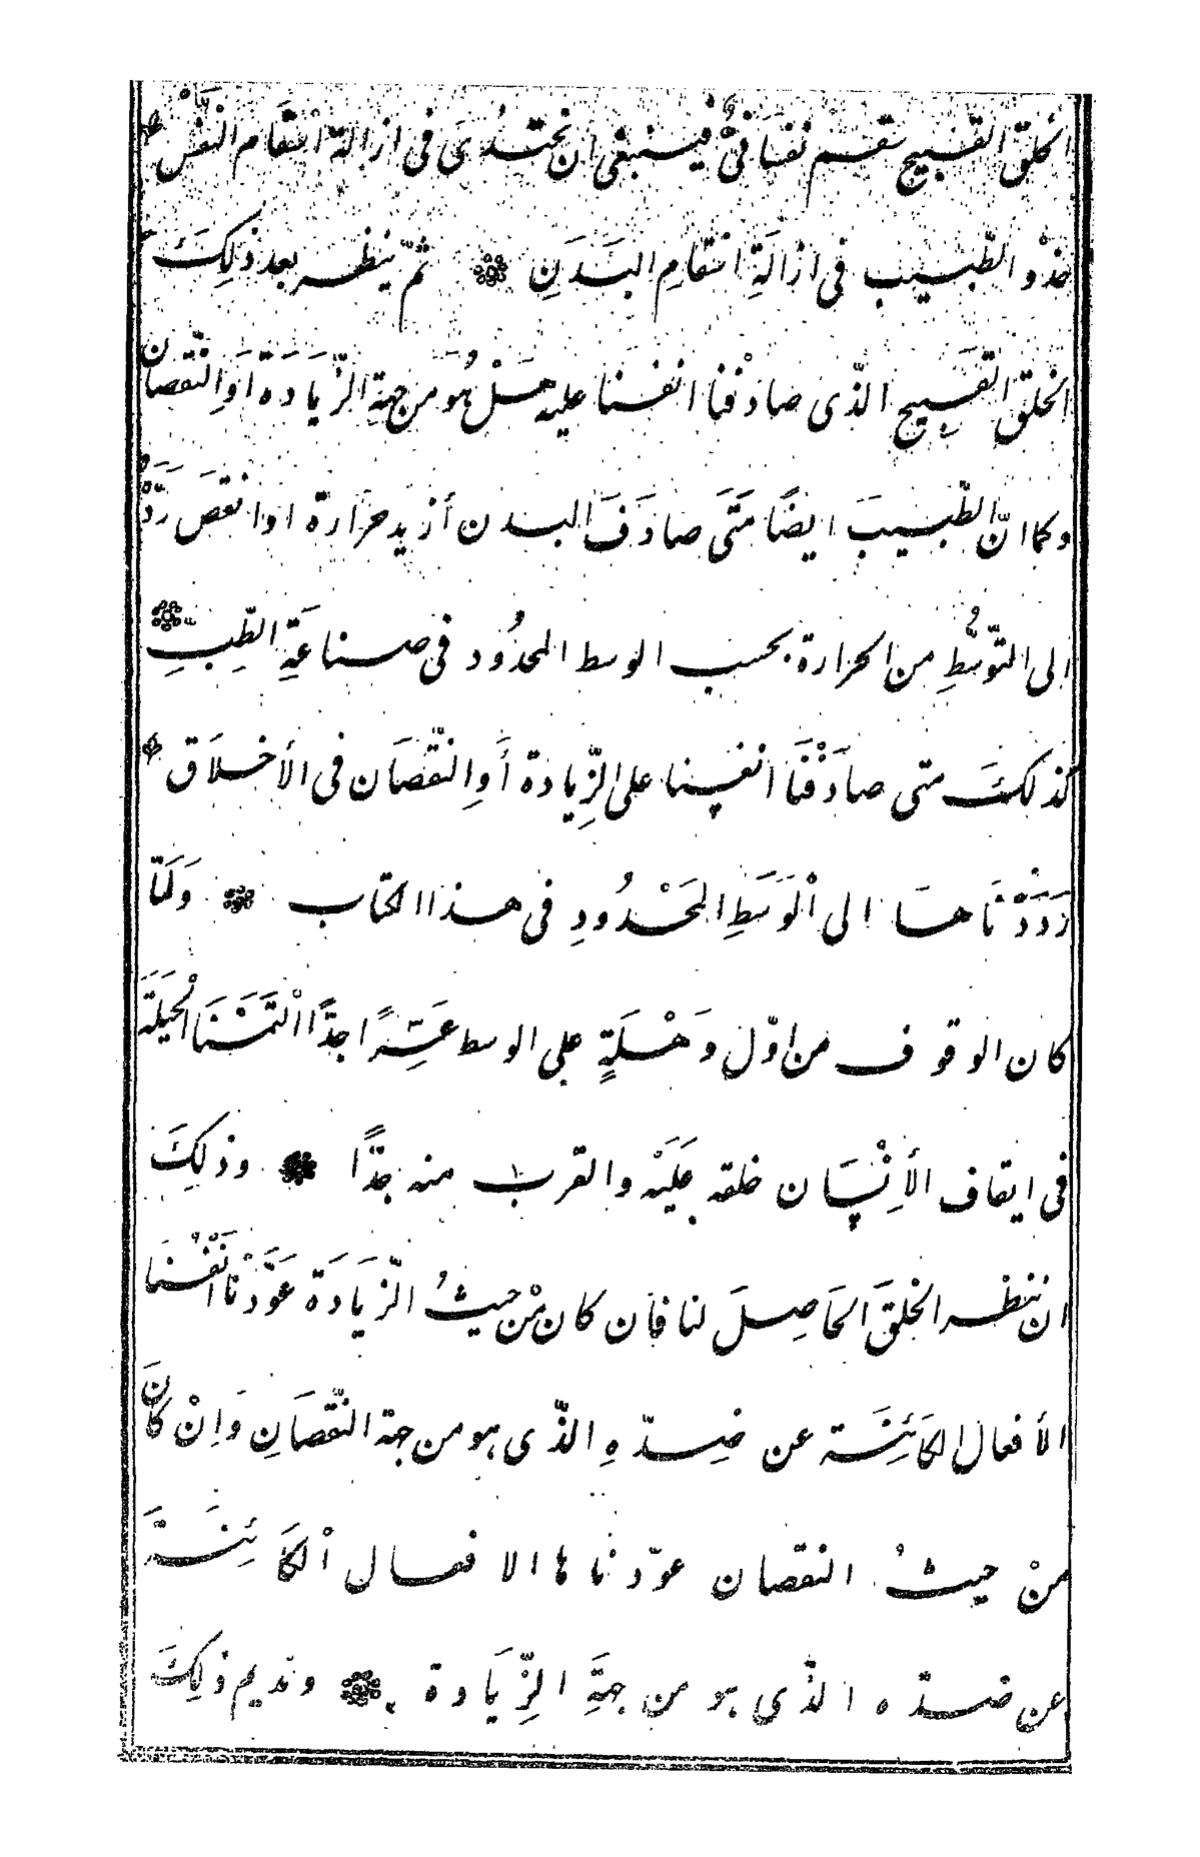 الخلق القبيح سقم نفسانیّ فینبغی ان نحتذی فی ازالة اسقام النفس
حذو الطّبیب فی ازالَةِ اسقامِ البَدَنِ ثمّ ینظر بعد ذلِکَ
الخلق القَبیح الّذی صادفْنا انفسنا علیه هَلْ هُوَ من جهةِ الزّیَادَة اَوِ النّقصان
وکما انّ الطّبیبَ ایضًا مَتَی صادَفَ البدن أزید حرَارة او انقصَ رَدَّهُ
الی التّوسُّطِ من الحرارة بحسب الوسط المحدُود فی صناعَةِ الطِبِ
کذلکَ متی صادَفْنَا انفسنا علی الزِّیادة أَوِ النّقصَان فی الأخلَاق
رَدَدْنَاهَا الی الْوَسَطِ المَحْدُودِ فی هذا الکتاب وَلَمّا
کان الوقوف من اوّل وَهْلَةٍ علی الوسط عَسِرًا جدًّا الْتَمَسْنَا الْحیلَةَ
فی ایقاف الأِنْسَان خلقه عَلَیْه والقرب منه جدًّا وذلِکَ
ان ننظر الخلقَ الحَاصِلَ لنا فان کان مِنْ حیثُ الزّیَادَة عَوَّدْنَا انْفُسَنا
الأفعال الکَائِنَة عن ضِدّهِ الذّی هو من جهة النّقصَانِ وَاِنْ کَانَ
منْ حیثُ النقصان عوّدناها الافعال الْکَائِنَةَ
عن ضدّه الذّی هو من جهَةِ الزِّیَادة وندیم ذلِکَ